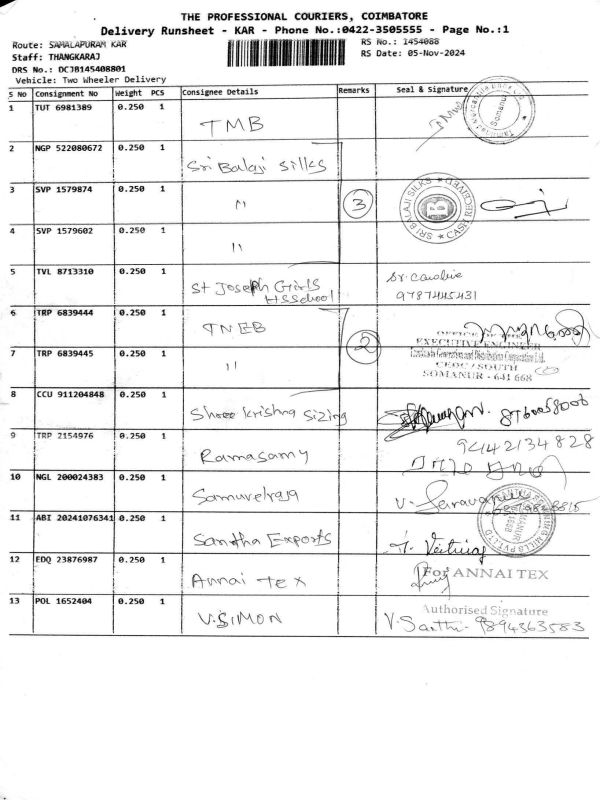 THE PROFESSIONAL COURIERS, COIMBATORE
Delivery Runsheet - KAR - Phone No.:0422-3505555 - Page No.:1
Route: SAMALAPURAM KAR
RS No.: 1454088
Staff: THANGKARAJ
RS Date: 05-Nov-2024
DRS No.: DCJB145408801
Vehicle: Two Wheeler Delivery
S No Consignment No Weight PCS Consignee Details Remarks Seal & Signature
1 TUT 6981389 0.250 1 TMB
2 NGP 522080672 0.250 1 Sri Balaji Silks
3 SVP 1579874 0.250 1 " 3
SRI BALAJI SILKS ★ CASH RECEIVED ★
4 SVP 1579602 0.250 1 "
5 TVL 8713310 0.250 1 St Joseph Girls HSSchool
9787445431
6 TRP 6839444 0.250 1 TNEB
7 TRP 6839445 0.250 1 " 2
EXECUTIVE ENGINEER
Generation and Distribution Corporation Ltd.
CEDC / SOUTH
SOMANUR - 641 668
8 CCU 911204848 0.250 1 Shree Krishna Sizing 8760058006
9 TRP 2154976 0.250 1 Ramasamy 9442134828
10 NGL 200024383 0.250 1 Samuvelraja
11 ABI 20241076341 0.250 1 Santha Exports
12 EDQ 23876987 0.250 1 Annai Tex
For ANNAI TEX
Authorised Signature
13 POL 1652404 0.250 1 V.SIMON V. Sarthi- 9894363583